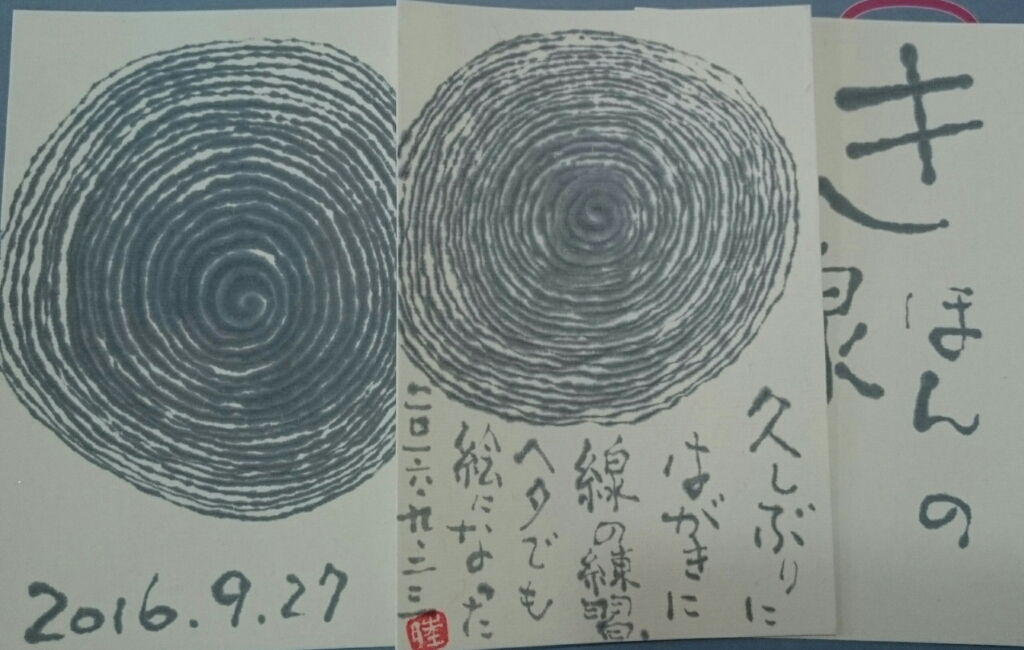 きほんの
線
久しぶりに
はがきに
線の練習、
ヘタでも
絵になった
二〇一六.九.二三
睦
2016.9.27